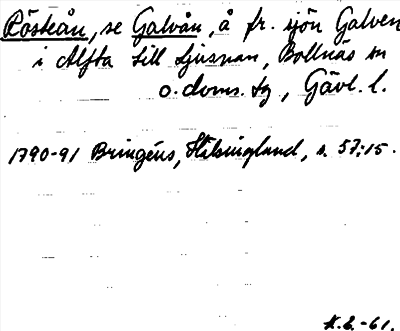 Rösteån, se Galvån, å fr. sjön Galven
i Alfta till Ljusnan, Bollnäs sn
o. doms. tg, Gävl. l.
1790-91 Bringéus, Hälsingland, s. 57:15.
K.E.-61.